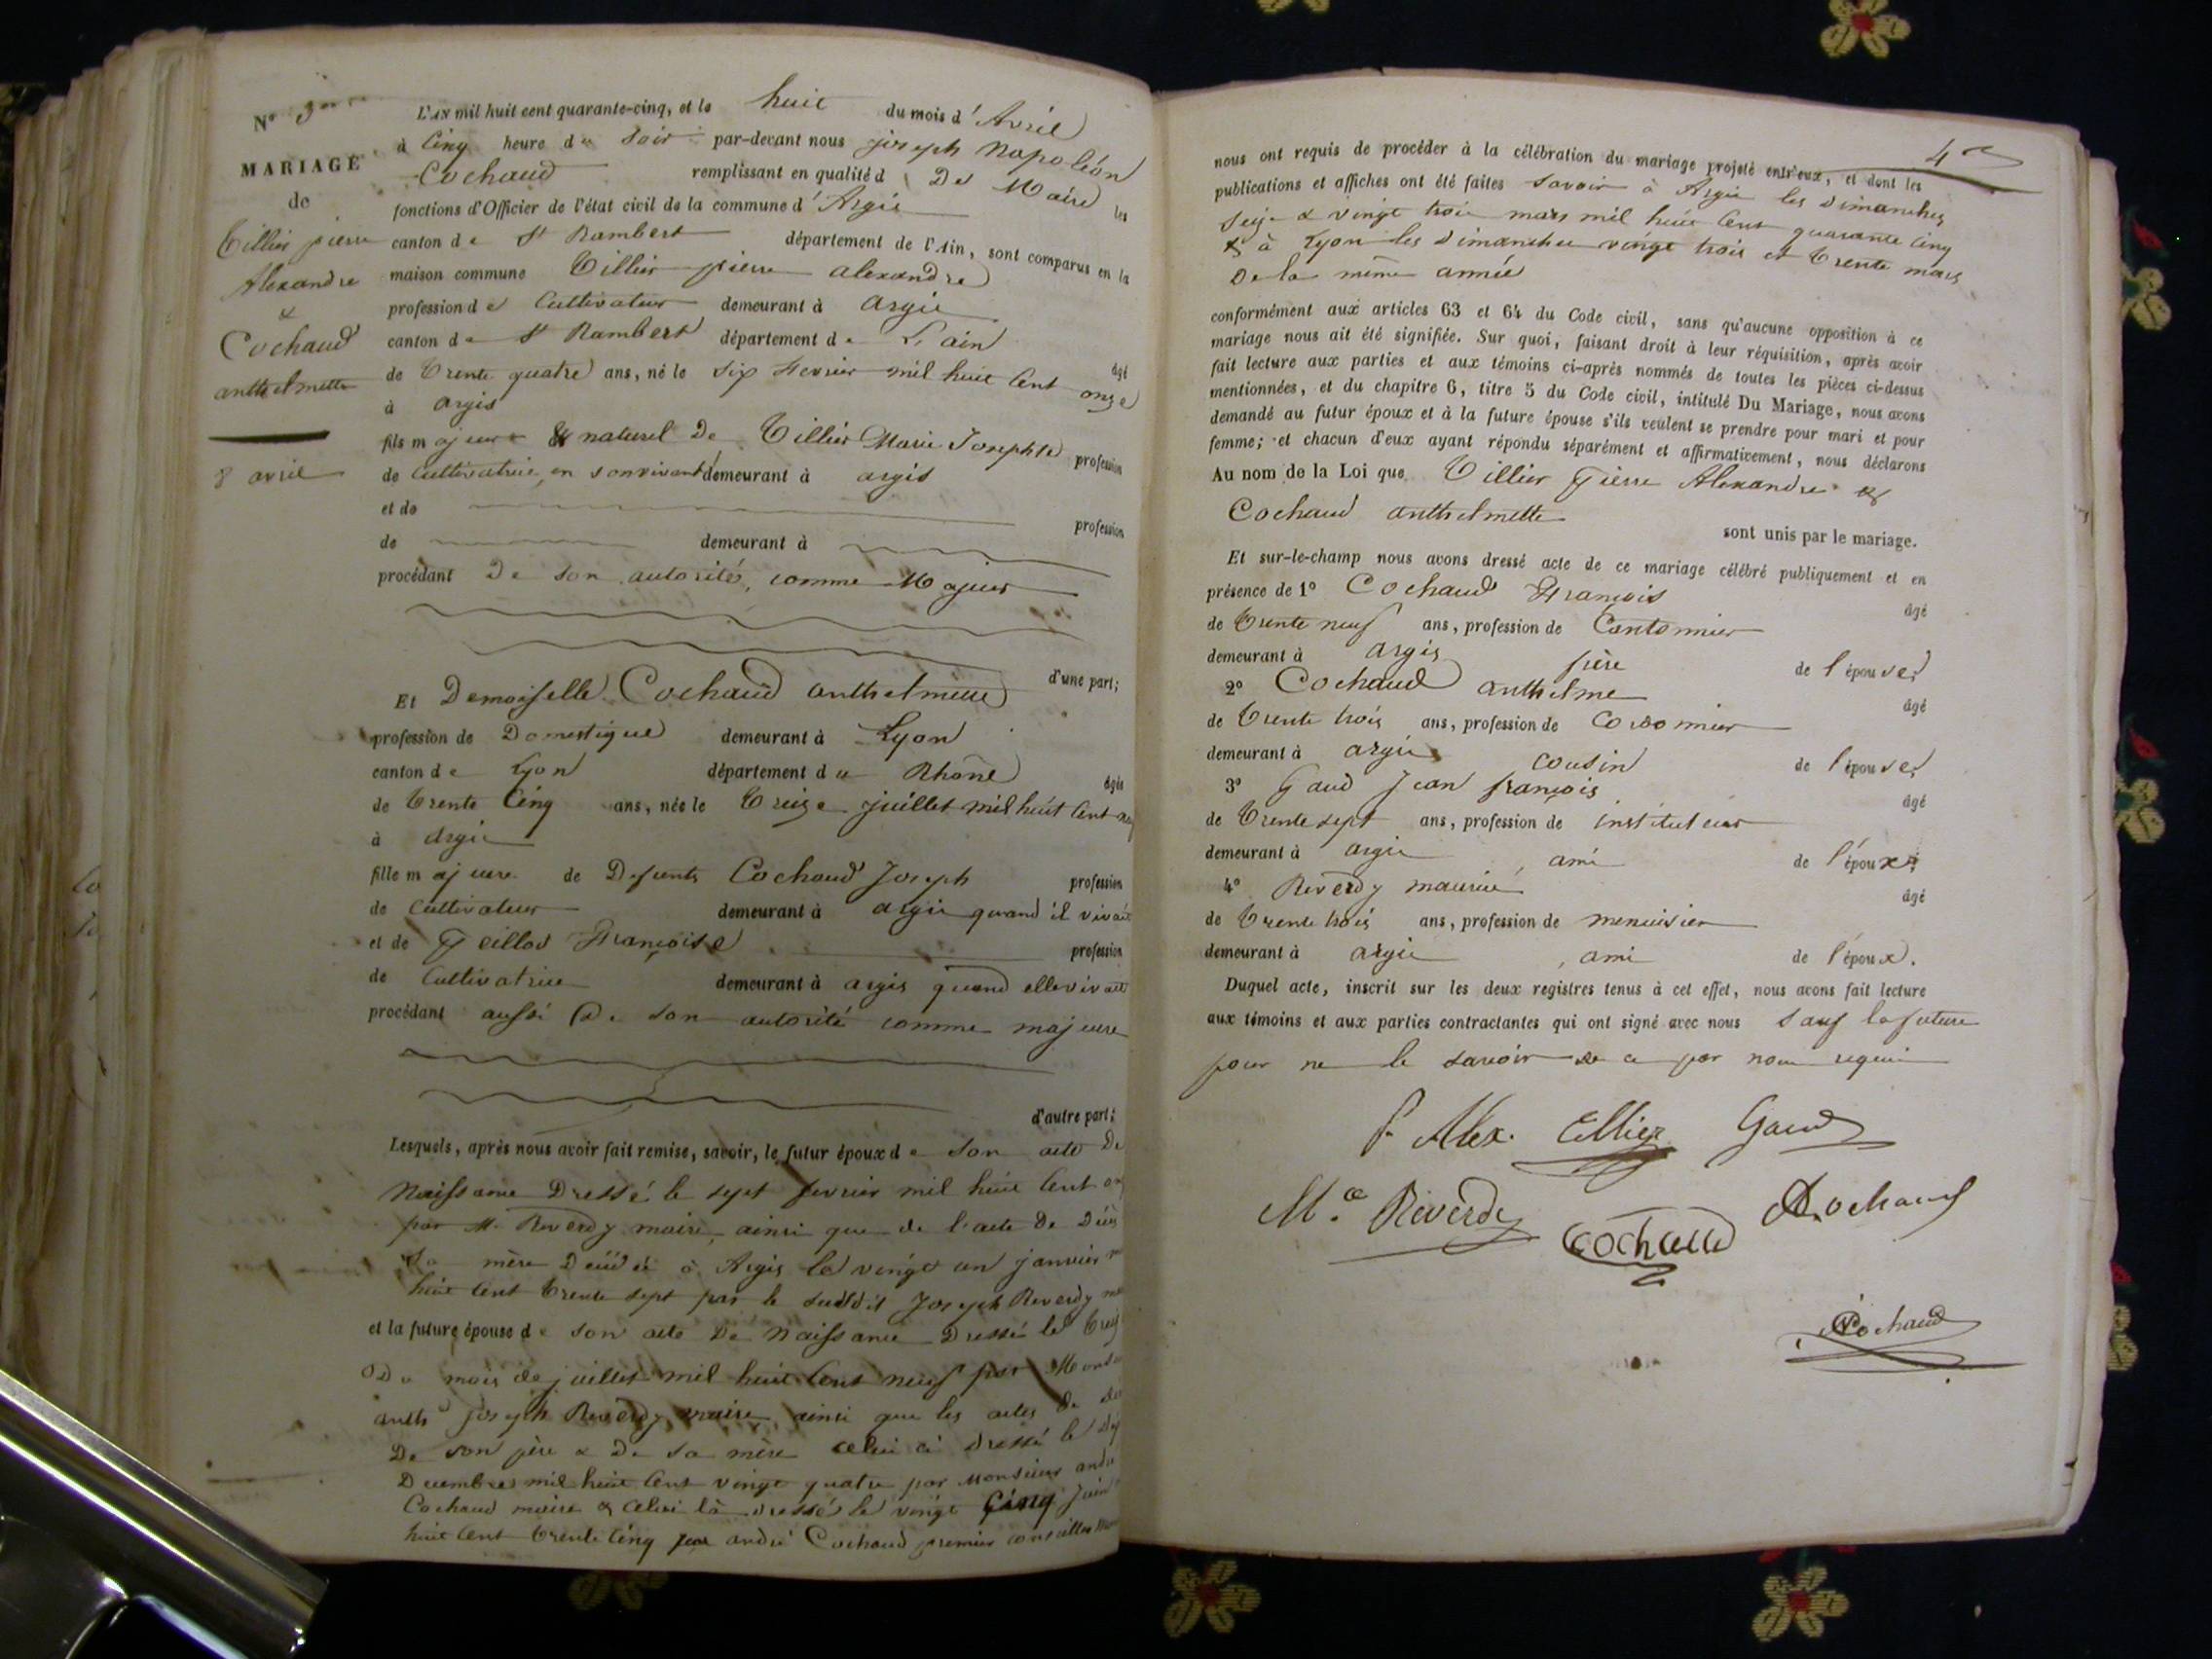 N° 3
MARIAGE
de
Tillier pierre
Alexandre
&
Cochaud
anthelmette
8 avril
L'AN mil huit cent quarante-cinq, et le huit du mois d'Avril
à Cinq heure du Soir par-devant nous joseph Napoléon
Cochaud remplissant en qualité d De Maire les
fonctions d'Officier de l'état civil de la commune d'Argis
canton de St Rambert département de l'Ain, sont comparus en la
maison commune Tillier pierre alexandre
profession de Cultivateur demeurant à argis
canton de St Rambert département de L'ain
âgé
de Trente quatre ans, né le six Fevrier mil huit Cent onze
à argis
fils majeur & naturel De Tillier Marie Josephte profession
de Cultivatrice, en son vivant demeurant à argis
et de profession
de demeurant à
procédant De Son autorité, comme Majeur
d'une part;
Et Demoiselle Cochaud anthelmette
profession de Domestique demeurant à Lyon
canton de Lyon département du Rhône
âgée
de Trente Cinq ans, née le Treize juillet mil huit Cent neuf
à Argis
fille majeure de Defunts Cochaud Joseph profession
de Cultivateur demeurant à argis quand il vivait
et de Françoise profession
de Cultivatrice demeurant à argis quand elle vivait
procédant aussi De son autorité comme majeure
d'autre part;
Lesquels, après nous avoir fait remise, savoir, le futur époux de son acte De
Naissance Dressé le sept fevrier mil huit Cent
par M. Reverdy maire, ainsi que de l'acte De Décès
Sa mère Décédée à Argis le vingt un janvier
huit Cent trente sept par le susdit Joseph Reverdy
et la future épouse de son acte De Naissance Dressé le
Du mois de juillet mil huit Cent neuf par
anthe joseph Reverdy maire, ainsi que les actes De
De son père & De sa mère celui ci dressé le
Decembre mil huit Cent vingt quatre par Monsieur andré
Cochaud maire & Celui là dressé le vingt Cinq juin
huit Cent Trente Cinq par andré Cochaud premier conseiller
4
nous ont requis de procéder à la célébration du mariage projeté entr'eux, et dont les
publications et affiches ont été faites savoir à Argis les Dimanches
Seize & vingt trois mars mil huit Cent quarante Cinq
& à Lyon les Dimanches vingt trois et Trente mars
De la même année
conformément aux articles 63 et 64 du Code civil, sans qu'aucune opposition à ce
mariage nous ait été signifiée. Sur quoi, faisant droit à leur réquisition, après avoir
fait lecture aux parties et aux témoins ci-après nommés de toutes les pièces ci-dessus
mentionnées, et du chapitre 6, titre 5 du Code civil, intitulé Du Mariage, nous avons
demandé au futur époux et à la future épouse s'ils veulent se prendre pour mari et pour
femme; et chacun d'eux ayant répondu séparément et affirmativement, nous déclarons
Au nom de la Loi que Tillier Pierre Alexandre &
Cochaud anthelmette
sont unis par le mariage.
Et sur-le-champ nous avons dressé acte de ce mariage célébré publiquement et en
présence de 1° Cochaud François
âgé
de Trente neuf ans, profession de Cantonnier
demeurant à argis frère de l'épouse;
2° Cochaud anthelme
âgé
de Trente trois ans, profession de Cordonnier
demeurant à argis cousin de l'épouse;
3° Gaud Jean françois
âgé
de Trente sept ans, profession de instituteur
demeurant à argis, ami de l'époux;
4° Reverdy maurice
âgé
de Trente trois ans, profession de menuisier
demeurant à argis, ami de l'époux.
Duquel acte, inscrit sur les deux registres tenus à cet effet, nous avons fait lecture
aux témoins et aux parties contractantes qui ont signé avec nous Sauf la future
pour ne le savoir de ce par nous requis
P. Alex. Tillier Gaud
Mce Reverdy Cochaud A Cochaud
Cochaud